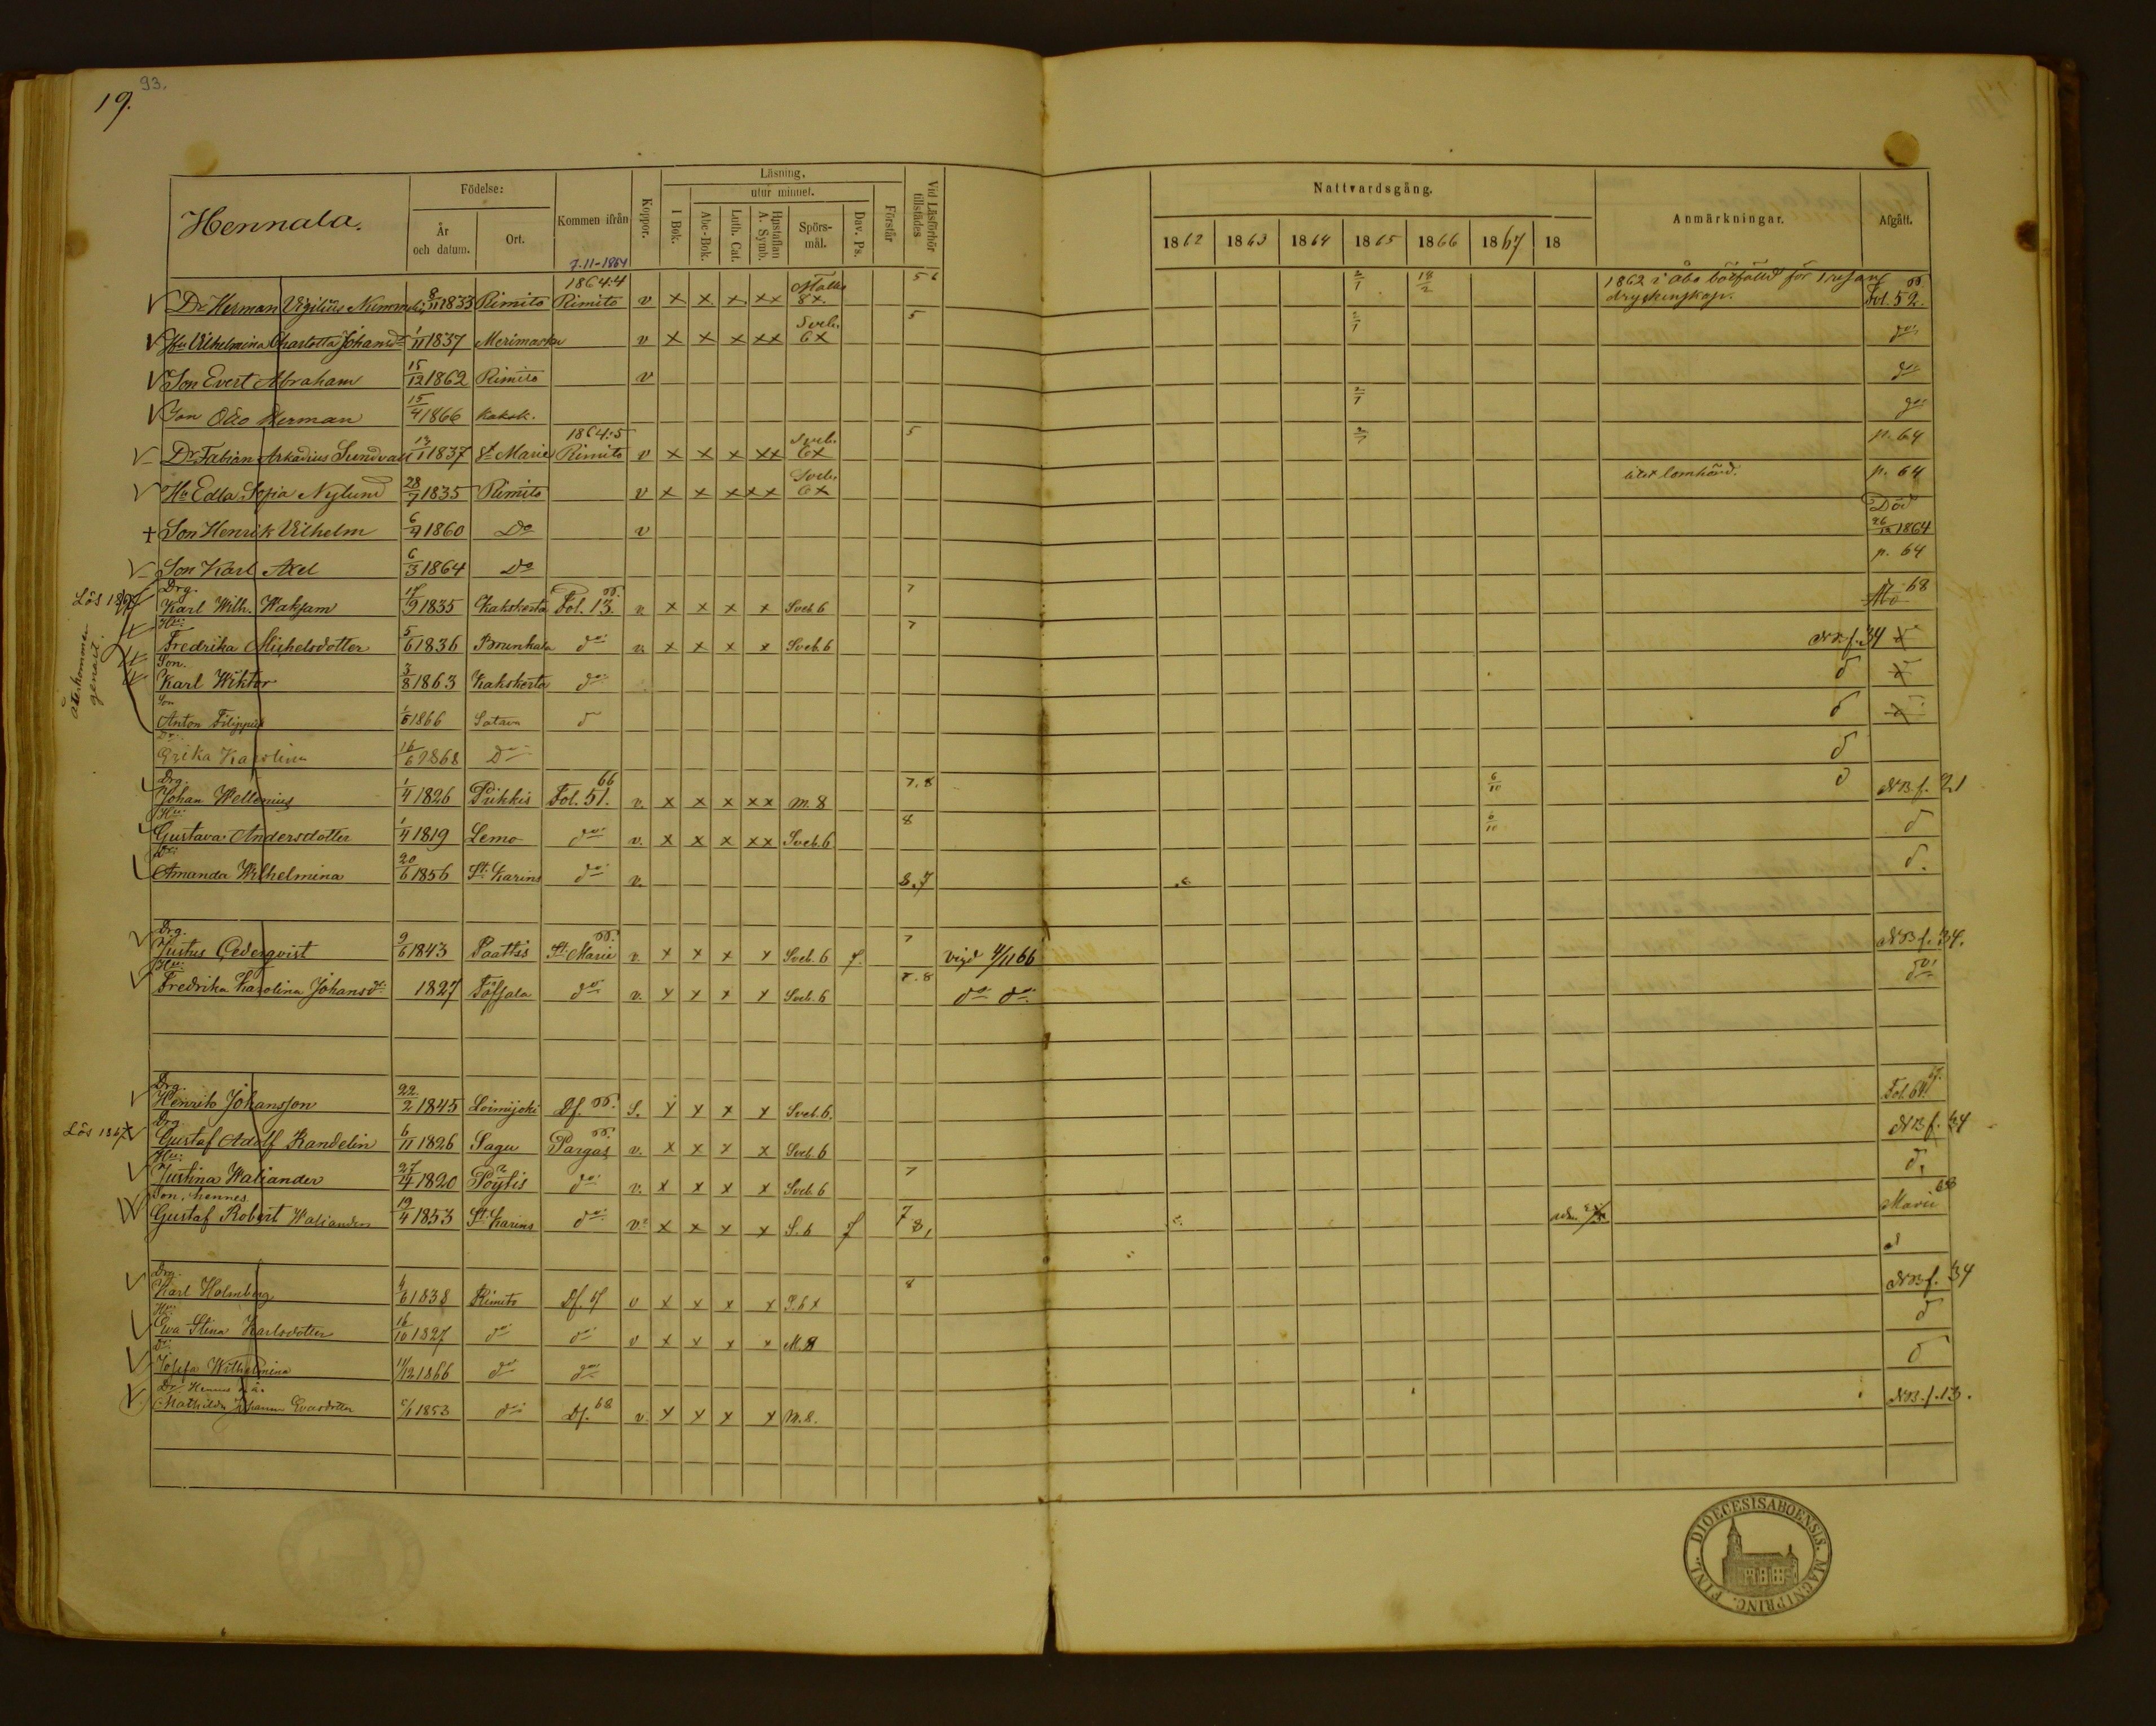 93.
19.
Hennala.
Födelse:
År och datum.
Ort.
Kommen ifrån
7.11-1864
Koppor.
Läsning,
utur minnet.
I Bok.
Abc-Bok.
Luth. Cat.
Hustaflan A. Symb.
Spörs-mål.
Dav. Ps.
Förstår
Vid Läsförhör tillstädes
Nattvardsgång.
1862 1863 1864 1865 1866 1867 18
Anmärkningar.
Afgått.
Dr Herman Vigilius 8/11 1833 Rimito 1864:4 Rimito v x x x xx 8x. 5 6 2/1 1862 i Åbo bötfälld för 1 resans dryckenskap. Fol. 52.
Hu Vilhelmina Charlotta Johansd 1/11 1837 Merimasku v x x x xx Sveb. 6x 5 2/1 do
Son Evert Abraham 15/12 1862 Rimito v do
Son Otto Herman 15/4 1866 Kaksk. 2/1 do
Dr Fabian Arkadius Sundvall 1837 St Marie 1864:5 Rimito v x x x xx Sveb. 6x 5 2/1 p. 64
Hu Edla Sofia Nylund 28/7 1835 Rimito v x x x xx Sveb. 6x lomhörd. p. 64
+ Son Henrik Vilhelm 6/7 1860 Do v Död 26/12 1864
Son Karl Axel 6/3 1864 Do p. 64
Lös 1867
återkommen genast.
Drg. Karl Wilh. Waksam 17/9 1835 Kakskerta Fol. 13. v. x x x x Sveb 6 7 68
Hu: Fredrika Michelsdotter 5/6 1836 Brunkala do v. x x x x Sveb. 6 7 NB f. 34
Son. Karl Wiktor 3/8 1863 Kakskerta do d
Son Anton Filippus 1/5 1866 Satava d d
Dr: Erika Karolina 16/6 1868 Do d
Drg. Johan Wellenius 1/4 1826 Piikkis Fol. 51. 66 v. x x x xx M. 8 7.8 6/10 d NB f. 21
Hu: Gustava Andersdotter 1/4 1819 Lemo do v. x x x xx Sveb. 6 8 6/10 d
Dr: Amanda Wilhelmina 20/6 1856 St. Karins do v. 8.7 d.
Drg. Justus Cederqvist 9/6 1843 Paattis St. Marie v. x x x x Sveb. 6 f. 7 vigd 4/11 66 NB f. 34.
Hu: Fredrika Karolina Johansdr 1827 Töfsala do v. x x x x Sveb. 6 7.8 do do do
Drg. Henrik Johansson 22/2 1845 Loimijoki Df. S. x x x x Sveb. 6. Fol. 64. 67.
Lös 1867
Drg. Gustaf Adolf Randelin 6/11 1826 Sagu Pargas v. x x x x Sveb. 6 NB f. 34
Hu: Justina Waliander 27/4 1820 Pöytis do v. x x x x Sveb. 6 7 d.
Son, hennes Gustaf Robert Waliander 19/4 1853 St. Karins do v. x x x x S. 6 f 7 8, adm. Marie 68
Drg. Karl Holmberg 4/6 1838 Rimito Df. 67 v x x x x S. 6 x 8 NB f. 34
Hu: Eva Stina Karlsdotter 16/10 1827 do do v x x x x M. 8 d
Dr: Josefa Wilhelmina 11/12 1866 do do d
Dr Hennes o. ä. Mathilda Johanna Evasdotter 1853 do Df. 68 v. x x x x M. 8. NB. f. 13.
FINL. DIOECESIS ABOENSIS. MAGNI PRINC.